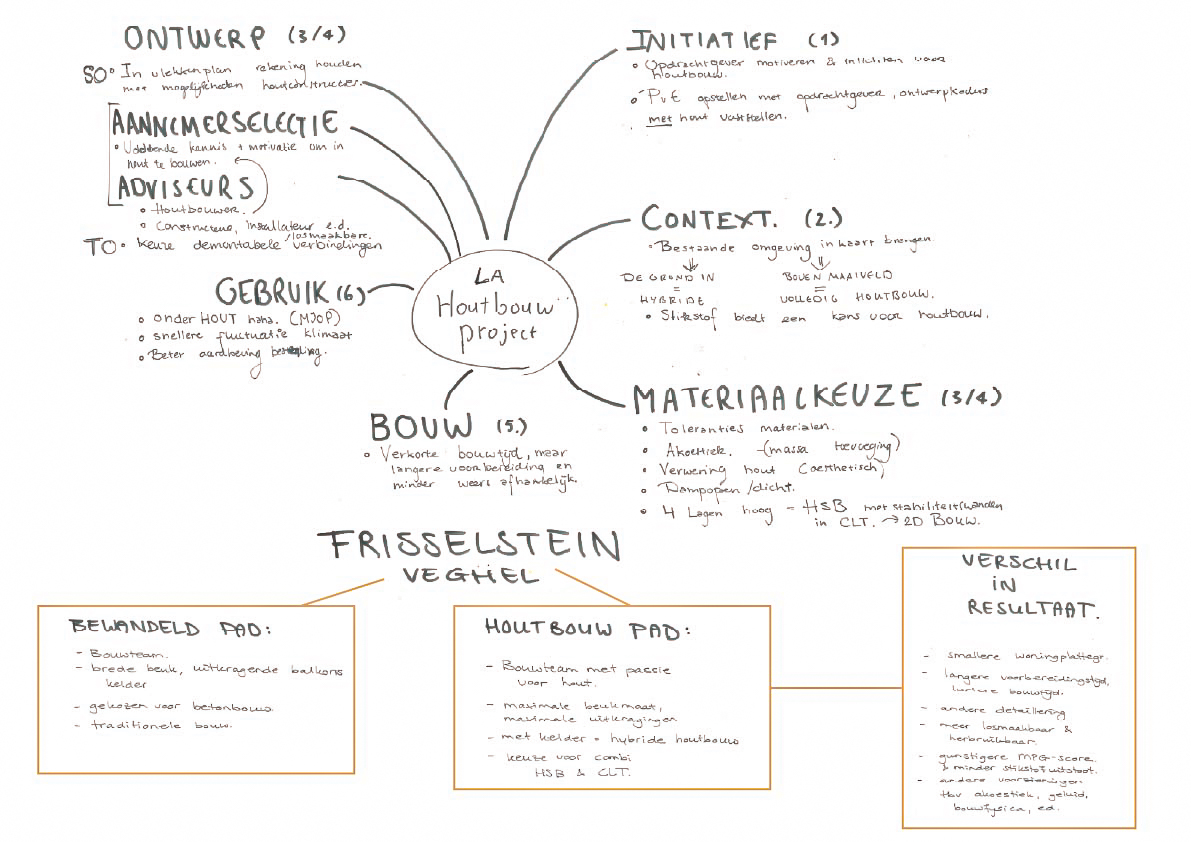 ONTWERP (3/4)
SO • In vlekkenplan rekening houden
met mogelijkheden houtconstructies.
AANNEMERSELECTIE
• Voldoende kennis + motivatie om in
hout te bouwen.
ADVISEURS
• Houtbouwer.
• Constructeur, installateur e.d.
TO • keuze demontabele/losmaakbare verbindingen
GEBRUIK (6)
• onder HOUT haha. (MJOP)
• snellere fluctuatie klimaat
• Beter aardbeving
BOUW (5.)
• Verkorte bouwtijd, maar
langere voorbereiding en
minder weersafhankelijk.
LA
Houtbouw
project
INITIATIEF (1)
• Opdrachtgever motiveren & voor
houtbouw.
• PvE opstellen met opdrachtgever, ontwerpkaders
met hout vaststellen.
CONTEXT. (2.)
• Bestaande omgeving in kaart brengen
DE GROND IN
=
HYBRIDE
BOVEN MAAIVELD
=
VOLLEDIG HOUTBOUW.
• Stikstof biedt een kans voor houtbouw.
MATERIAALKEUZE (3/4)
• Toleranties materialen.
• Akoetiek. -(massa toevoeging)
• Verwering hout (aesthetisch)
• Dampopen/dicht.
• 4 Lagen hoog - HSB met stabiliteitswanden
in CLT. → 2D BOUW.
FRISSELSTEIN
VEGHEL
BEWANDELD PAD:
- Bouwteam.
- brede beuk, uitkragende balkons
kelder
- gekozen voor betonbouw.
- traditionele bouw.
HOUTBOUW PAD:
- Bouwteam met passie
voor hout.
- maximale beukmaat,
maximale uitkragingen
- met kelder = hybride houtbouw
- keuze voor combi
HSB & CLT.
VERSCHIL
IN
RESULTAAT.
- smallere woningplattegr.
- langere voorbereidingstijd,
kortere bouwtijd.
- andere detaillering
- meer losmaakbaar &
herbruikbaar.
- gunstigere MPG-score.
& minder stikstofuitstoot.
- andere voorzieningen
tbv akoestiek, geluid,
bouwfysica, ed.